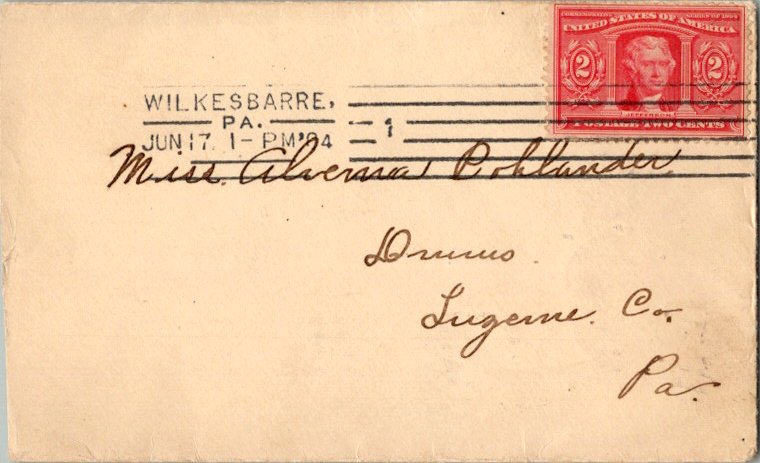 COMMEMORATIVE SERIES OF 1904
UNITED STATES OF AMERICA
2 2
JEFFERSON
POSTAGE TWO CENTS
WILKESBARRE,
PA. 1
JUN 17. 1-PM '04
Miss. Alverna Pohlander
Drums.
Luzerne. Co.
Pa.